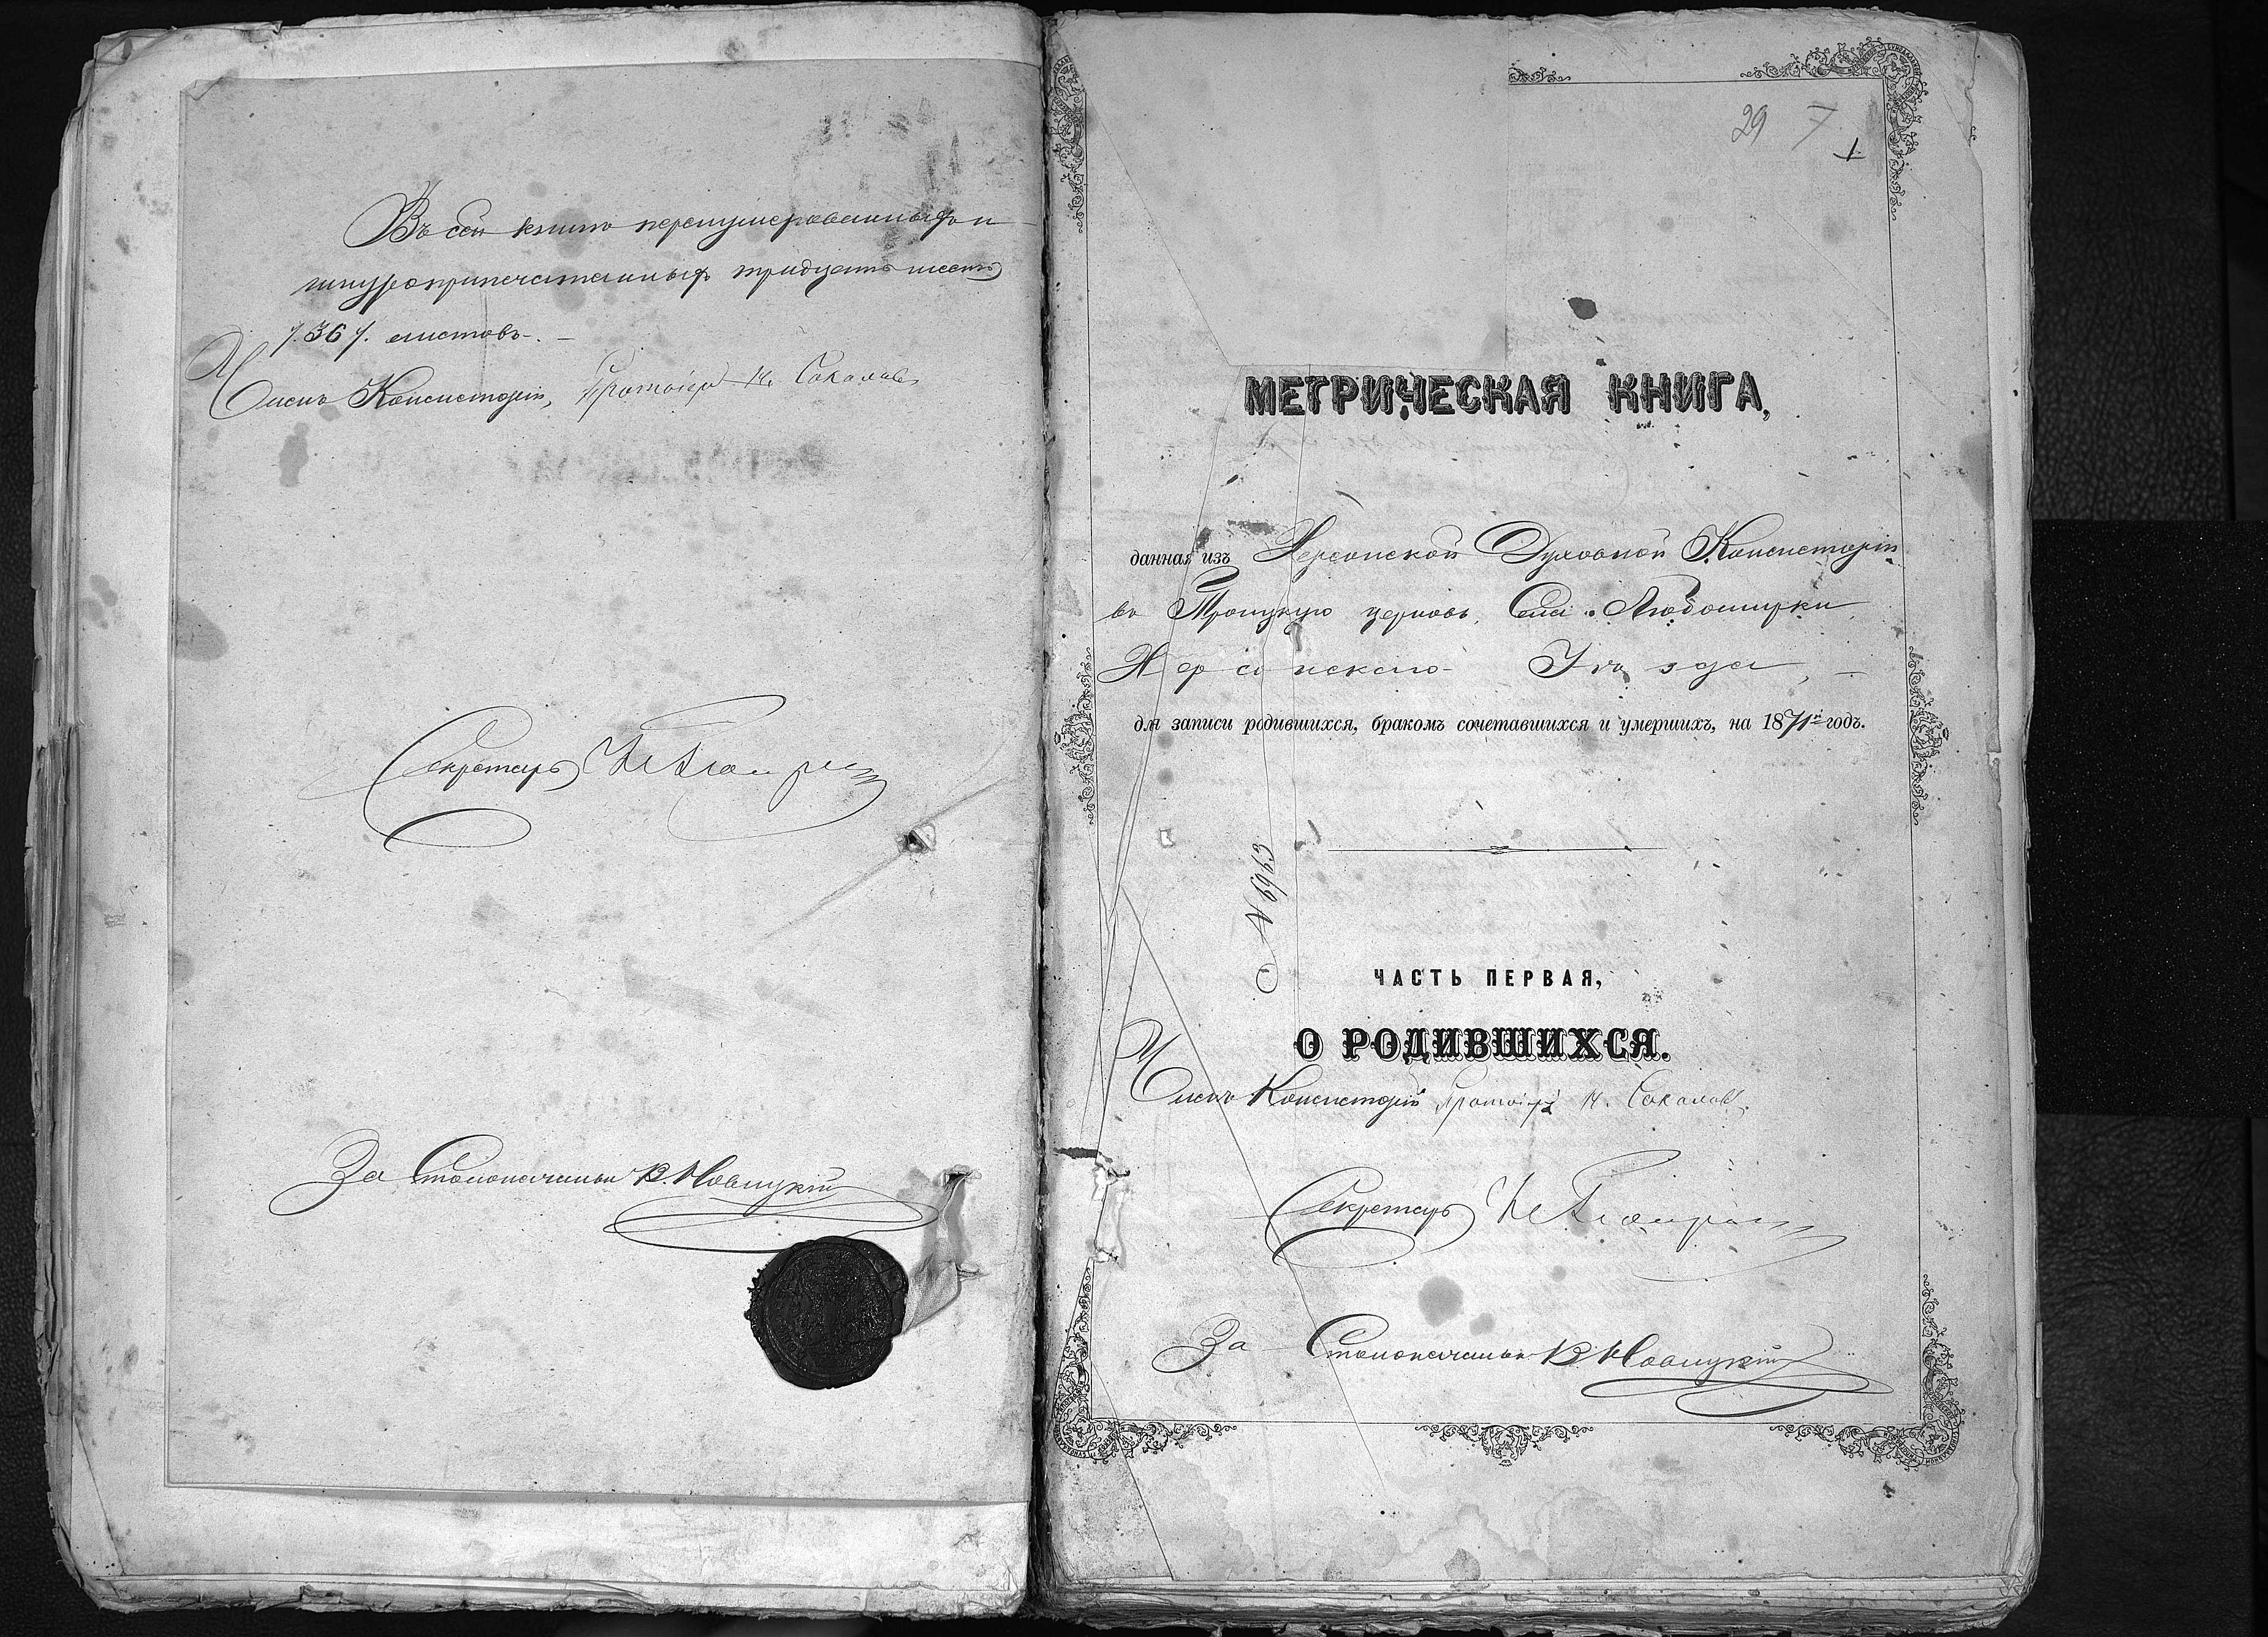 Въ сей книгѣ перенумерованныхъ и
шнуроприпечатанныхъ тридцать шесть
/:36:/ листовъ.
Членъ Консисторіи, Протоіерей Соколовъ
Секретарь
За Столоначальн В. Новицкій
29 7
1
МЕТРИЧЕСКАЯ КНИГА,
данная изъ Херсонской Духовной Консисторіи
въ Троицкую церковь, Села Любомирки
Херсонскаго Уѣзда,
для записи родившихся, бракомъ сочетавшихся и умершихъ, на 1871й годъ.
№ 6963
ЧАСТЬ ПЕРВАЯ,
О РОДИВШИХСЯ.
Членъ Консисторіи Протоіерей Соколовъ
Секретарь
За Столоначальн В. Новицкій